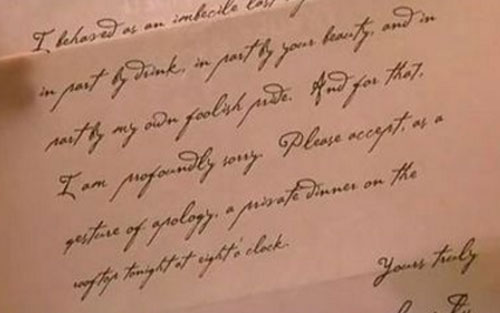 I behaved as an imbecile last
in part by drink, in part by your beauty, and in
part by my own foolish pride. And for that,
I am profoundly sorry. Please accept, as a
gesture of apology, a private dinner on the
rooftop tonight at eight o'clock.
Yours truly